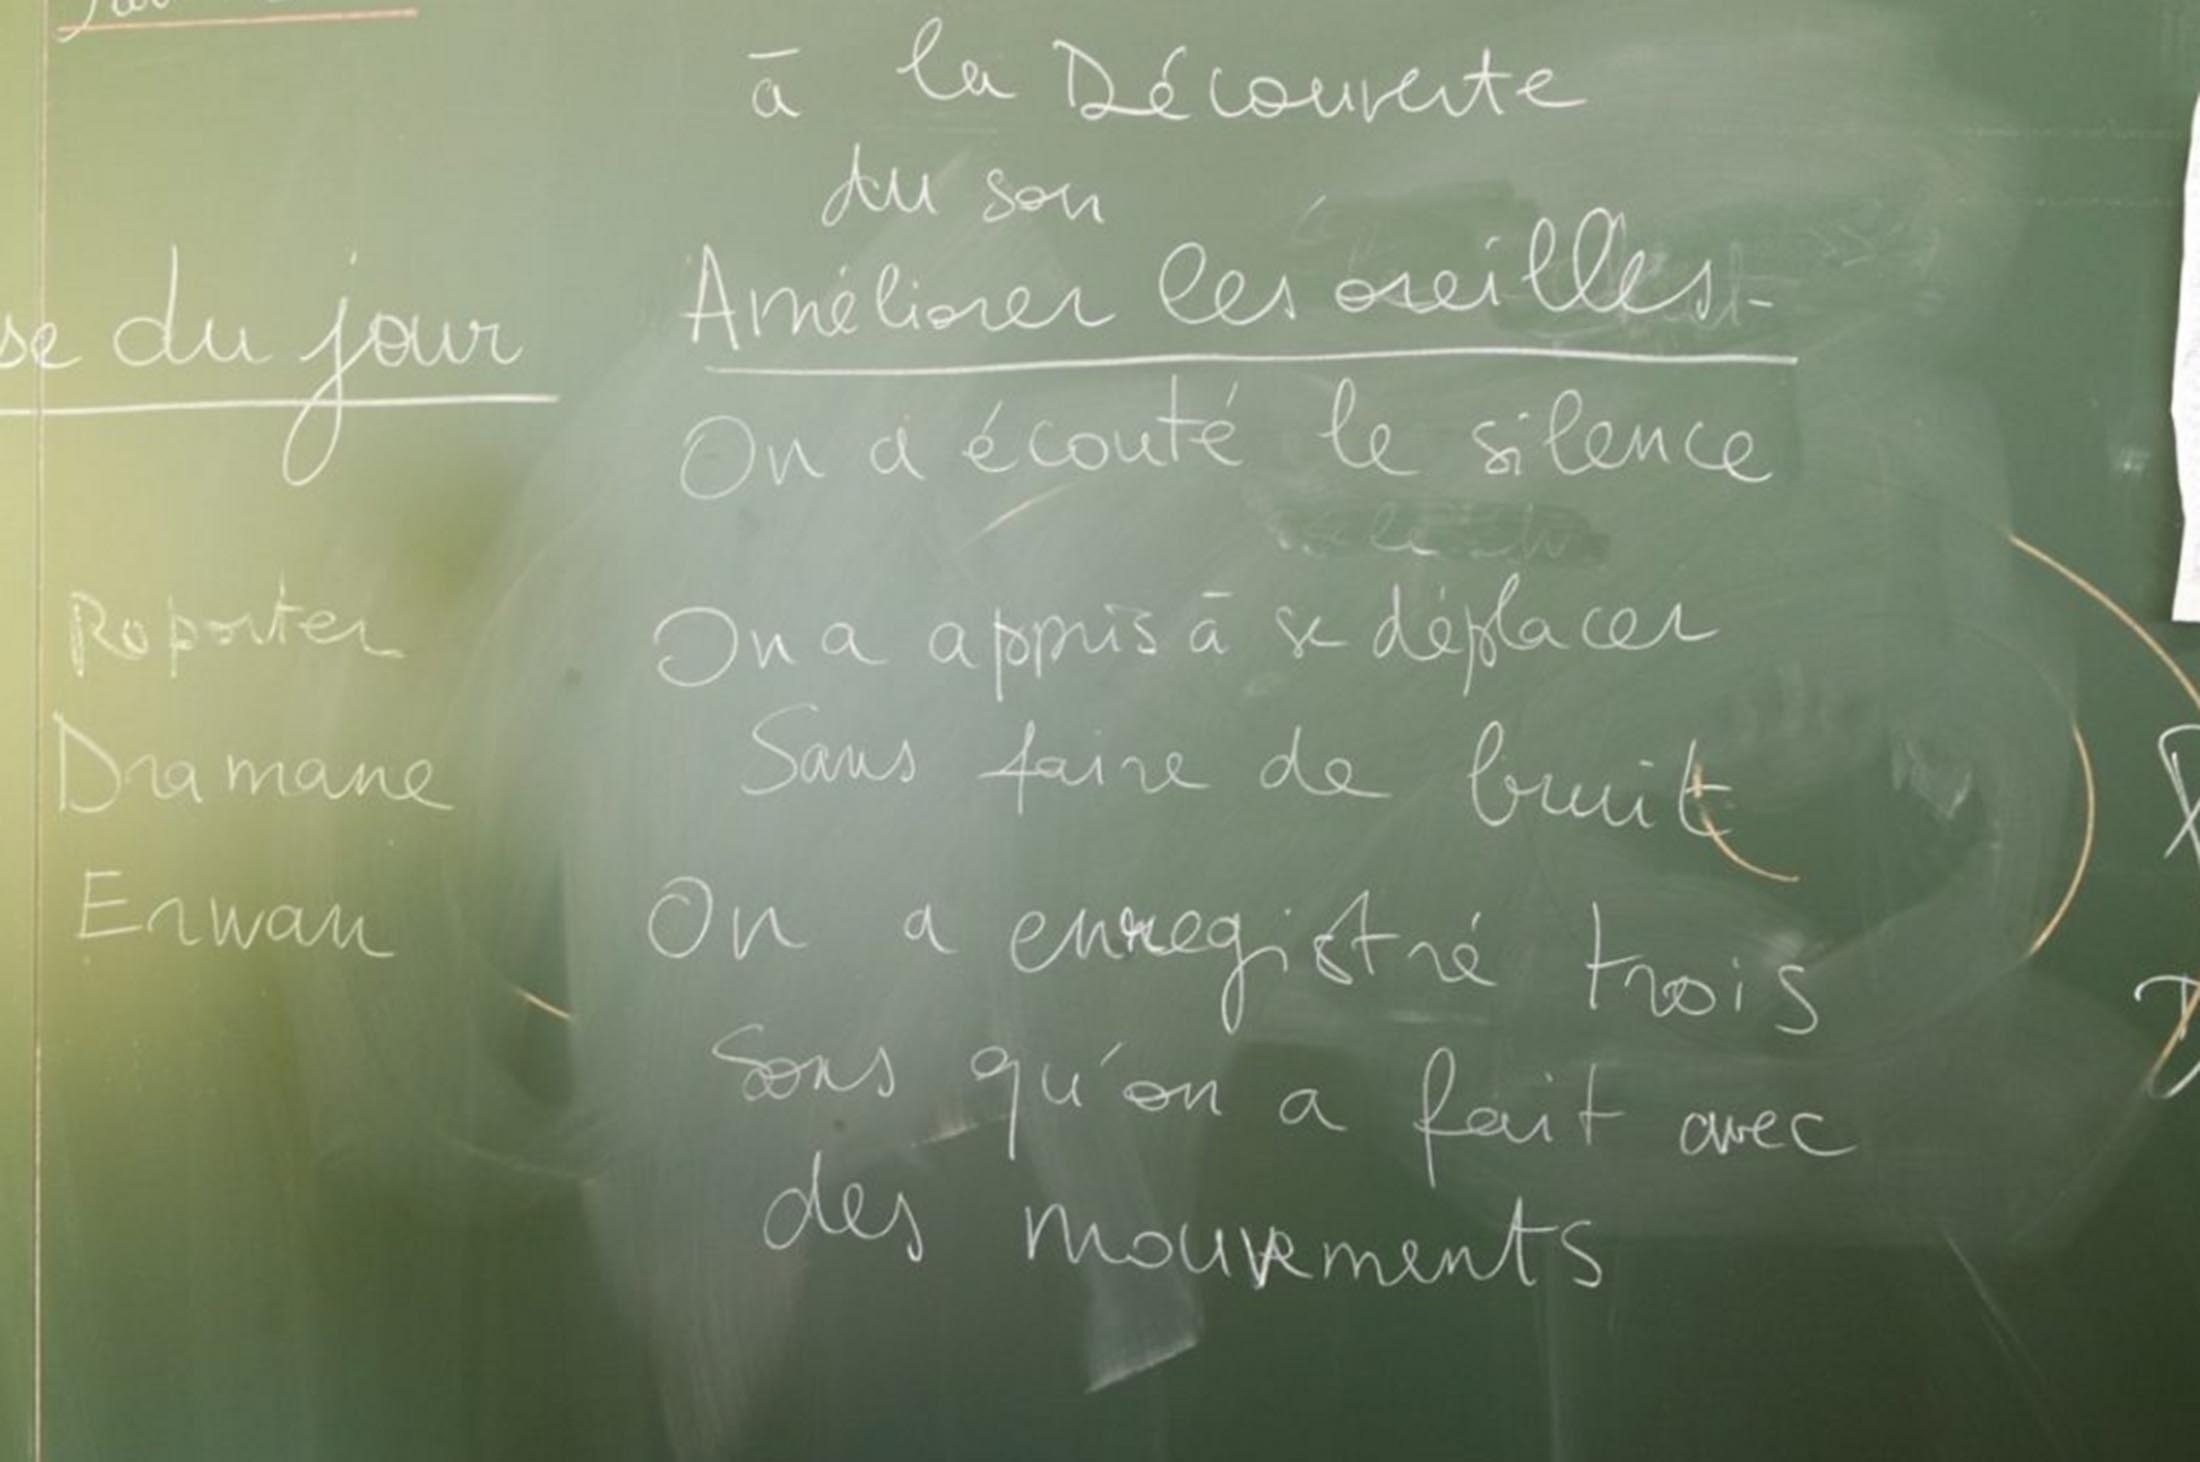 à la Découverte
du son
Améliorer les oreilles.
se du jour
On a écouté le silence
Reporter
On a appris à se déplacer
Sans faire de bruit
Dramane
Erwan
On a enregistré trois
Sons qu'on a fait avec
des mouvements